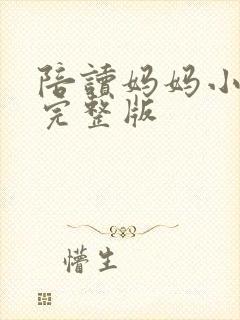 陪讀妈妈小
完整版
懵生